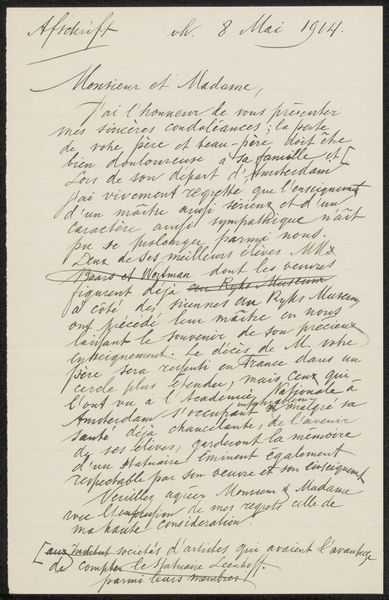 Afschrift vh. 8 Mai 1914.
Monsieur et Madame,
J'ai l'honneur de vous présenter
mes sincères condoléances; la perte
de votre père et beau-père doit être
bien douloureuse à sa famille et
Lors de son départ d'Amsterdam
j'ai vivement regretté que l'enseignement
d'un maître aussi sérieux et d'un
caractère aussi sympathique n'ait
pu se prolonger parmi nous.
Deux de ses meilleurs élèves MM
et dont les œuvres
figurent déjà au Ryks Museum
à côté des siennes au Ryks Museum
ont précédé leur maître en nous
laissant le souvenir de son précieux
enseignement. Le décès de M. votre
père sera ressenti en France dans un
cercle plus étendu, mais ceux qui
l'ont vu à l'Academie Nationale à
Amsterdam s'occupant malgré sa
santé déjà chancelante, de l'avenir
de ses élèves, garderont la mémoire
d'un statuaire éminent également
respectable par son œuvre et son enseignement
Veuillez agréer Monsieur & Madame
avec l'expression de mes regrets celle de
ma haute considération.
[aux sociétés d'articles qui avaient l'avantage
de compter le statuaire Leenhoff
parmi leurs membres]